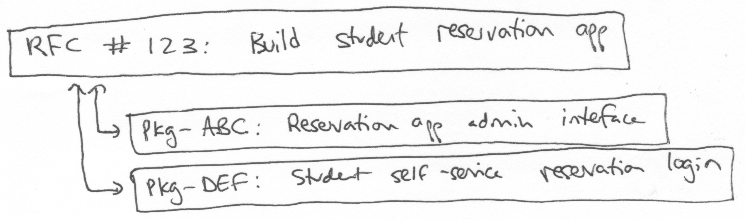 RFC # 123: Build student reservation app
Pkg-ABC: Reservation app admin inteface
Pkg-DEF: Student self-service reservation login